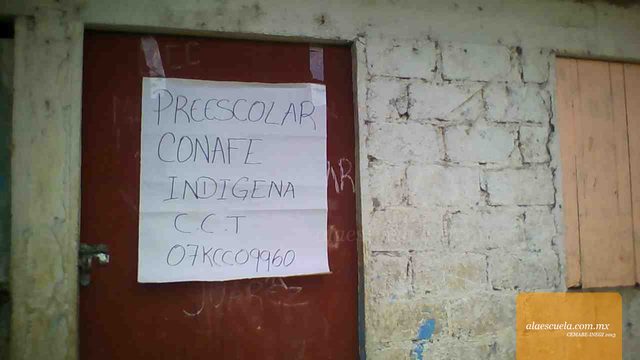 EC
PREESCOLAR
CONAFE
INDIGENA
C.C.T
07KCC09960
AR
JUAREZ
alaescuela.com.mx
CEMABE-INEGI 2013